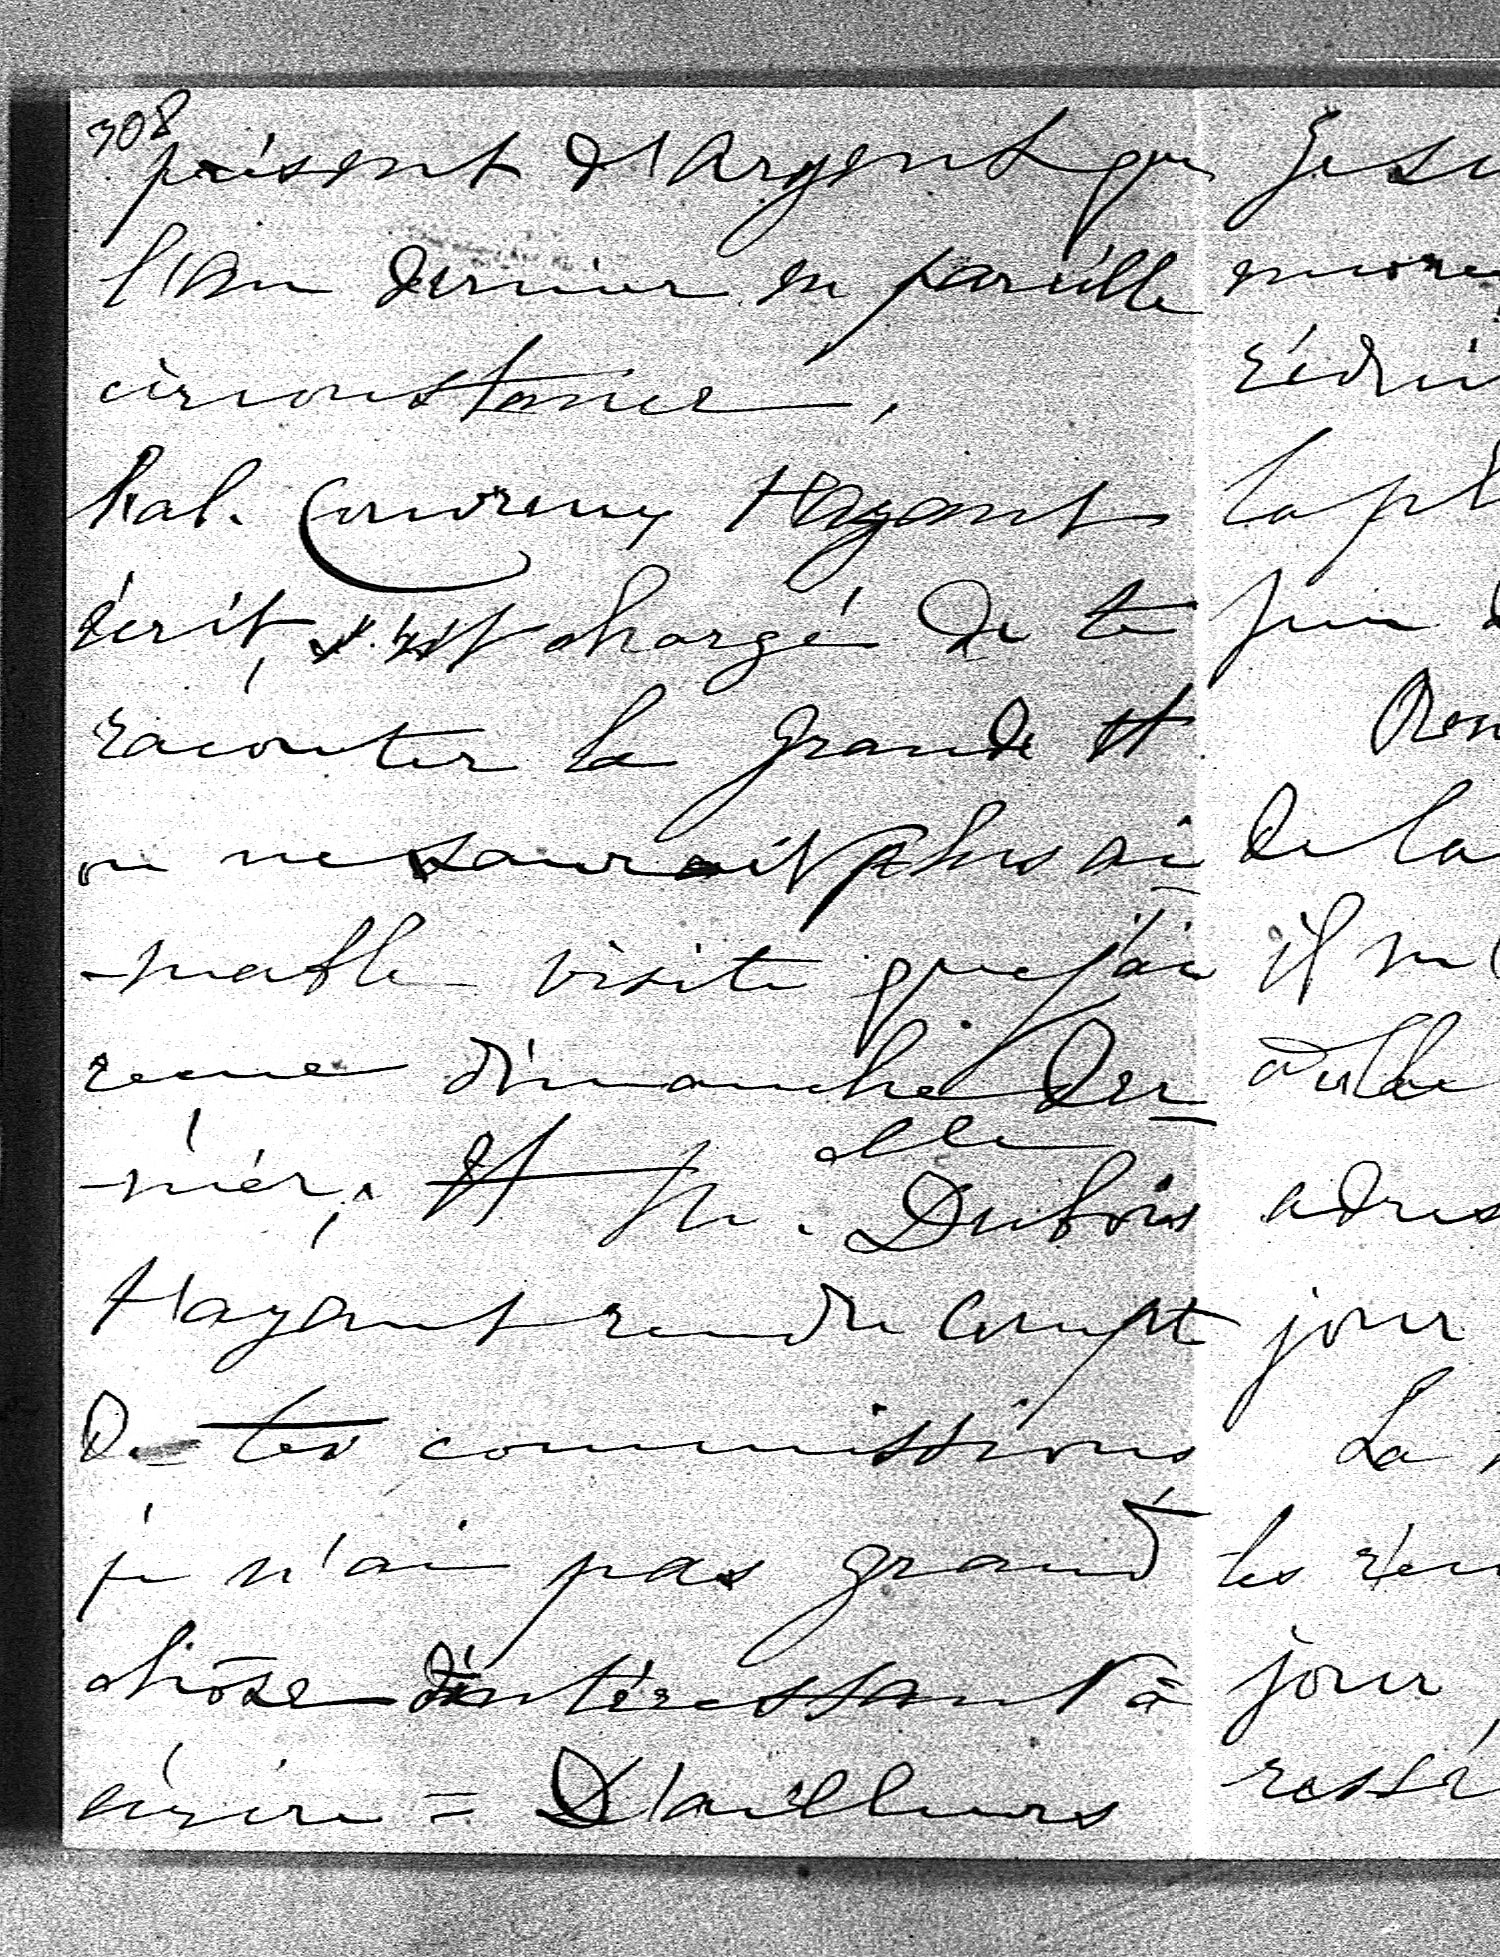 308
présent d'Argent que
l'an dernier en pareille
circonstance.
Hayant
écrit, s'est chargé de te
raconter la grande et
on ne saurait plus ai
-mable visite que j'ai
recue dimanche der
-niér, et Melle Dubois
Hayant rendu compte
De tes commissions
je n'ai pas grand
chose d'intéressant à
écrire = D'ailleurs
Je su
encore
la pl
De la
il m'
adres
jour
La
les
jour